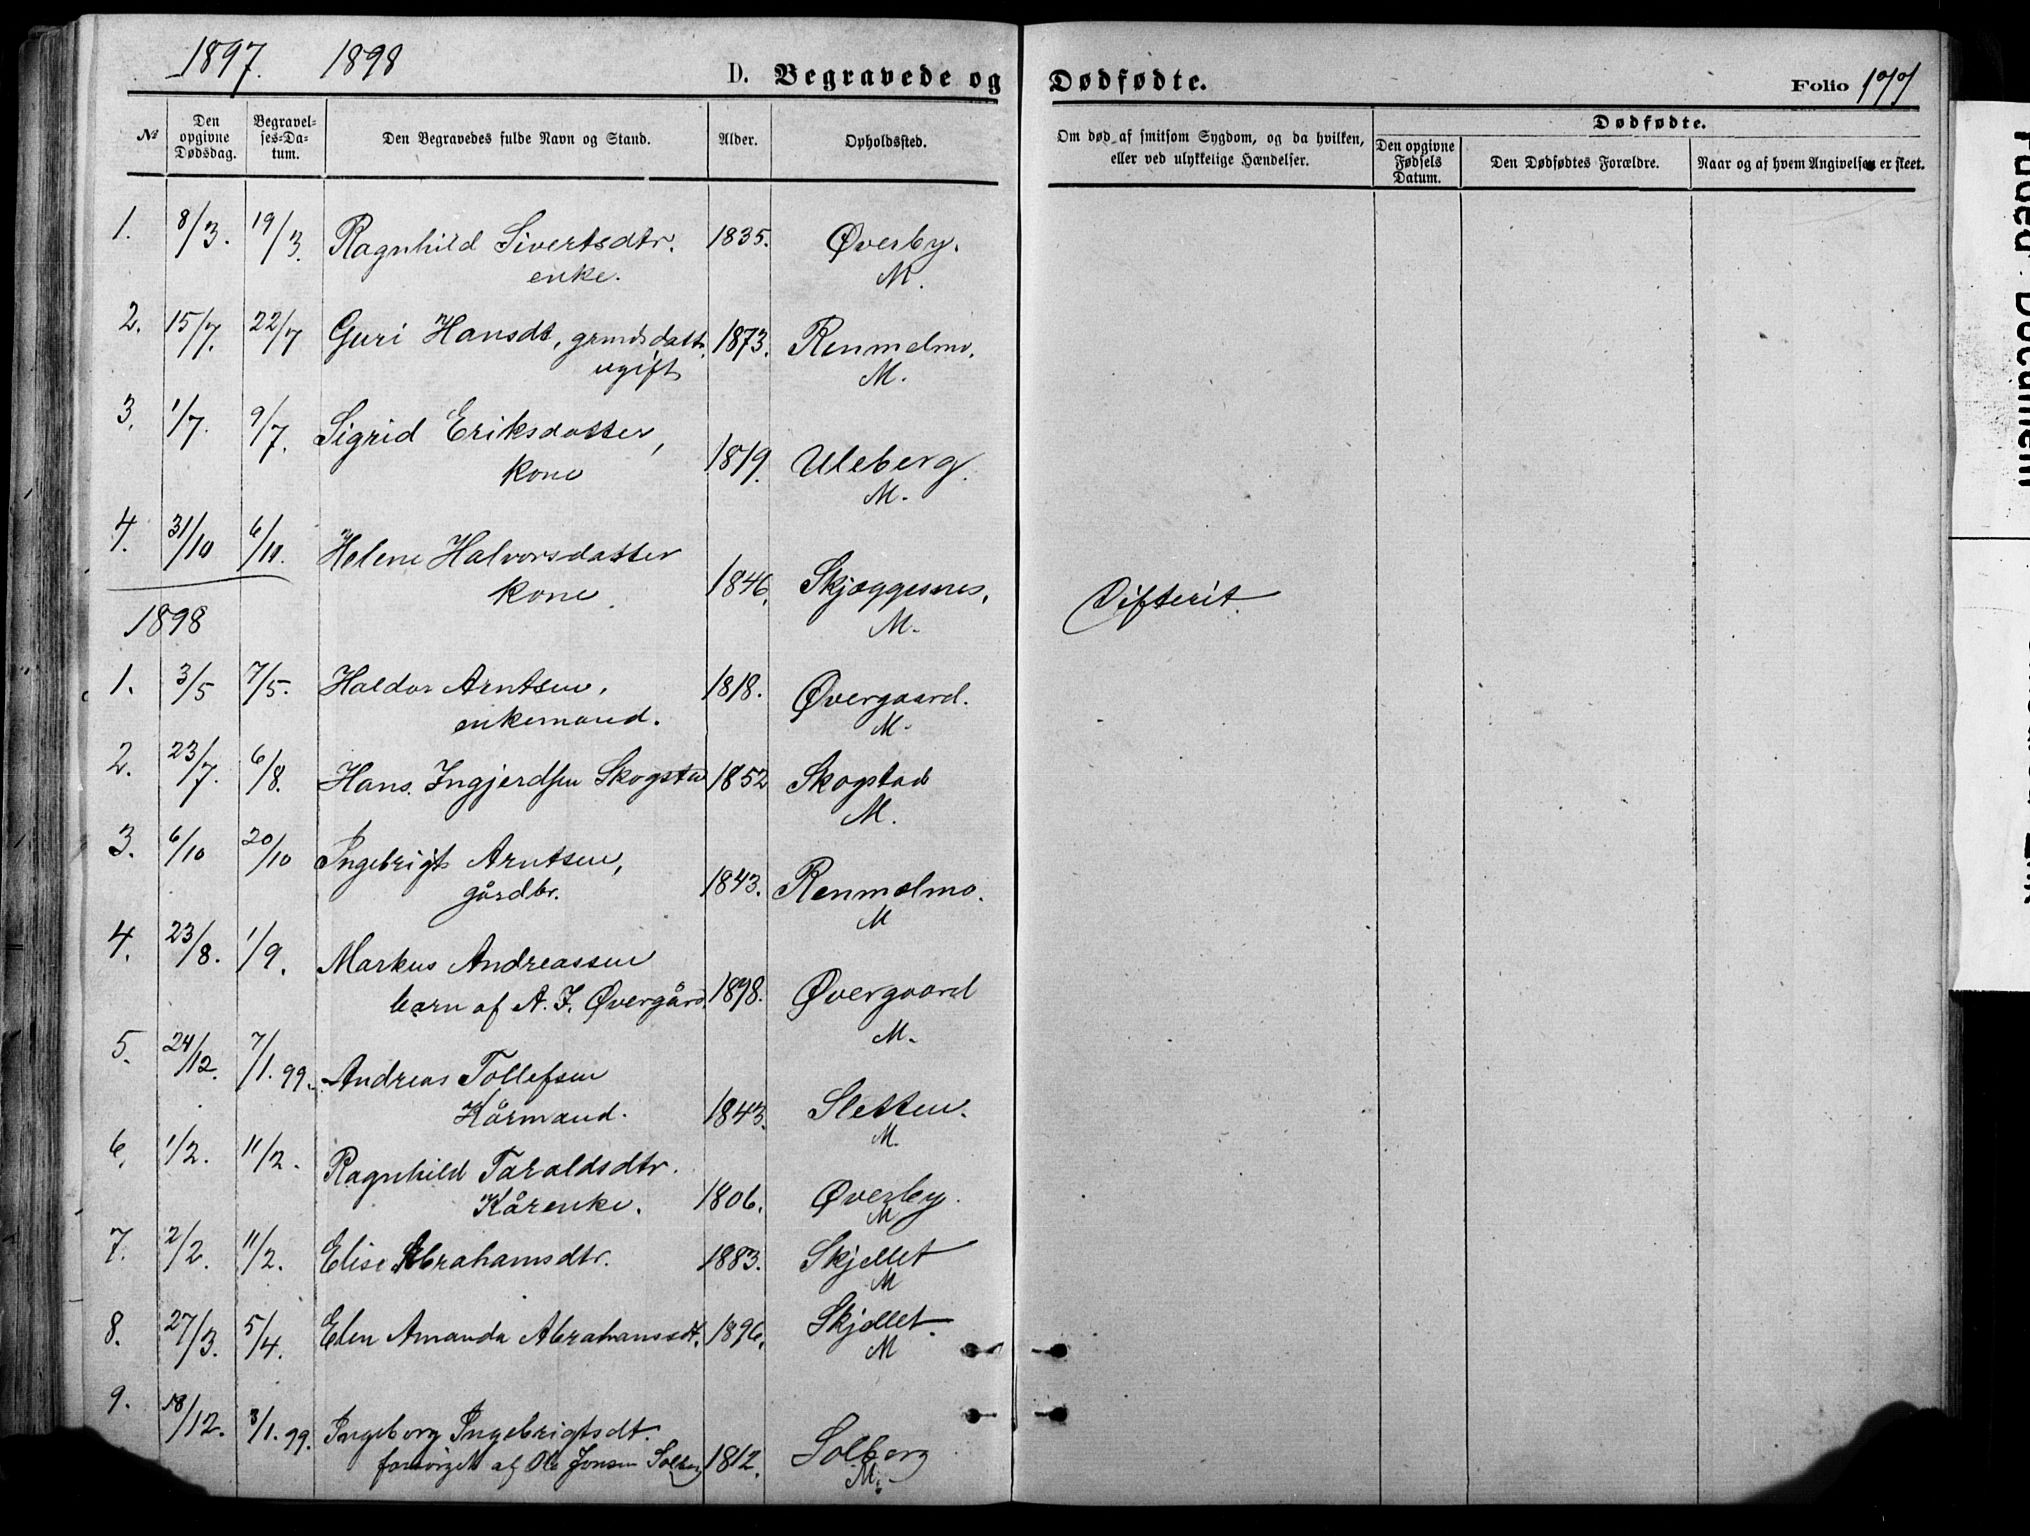 1897. 1898 D. Begravede og Dødfødte. Folio 177
№ Den opgivne Dødsdag. Begravelses-Datum. Den Begravedes fulde Navn og Stand. Alder. Opholdssted. Om død af smitsom Sygdom, og da hvilken, eller ved ulykkelige Hændelser. Dødfødte. Den opgivne Fødsels Datum. Den Dødfødtes Forældre. Naar og af hvem Angivelsen er skeet.
1. 8/3. 19/3. Ragnhild Sivertsdtr. 1835. Øverby.
enke. M.
2. 15/7. 22/7 Guri Hansdt, grmdsdattr. 1873. Renmelmo.
ugift M.
3. 1/7. 9/7. Sigrid Eriksdatter, 1819. Uleberg.
kone M.
4. 31/10 6/11. Helene Halvorsdatter
kone. 1846. Skjæggesnes. Difterit.
M.
1898
1. 3/5 7/5. Haldor Arntsen, 1818. Øvergaard.
enkemand. M.
2. 23/7. 6/8. Hans Ingjerdsen Skogstad 1852 Skogstad
M.
3. 6/10 20/10 Ingebrigt Arntsen,
gårdbr. 1843. Renmælmo.
M
4. 23/8. 1/9. Markus Andreassen
barn af A. J. Øvergård. 1898. Øvergaard
M.
5. 24/12. 7/1. 99. Andreas Tollefsen
Kårmand. 1843. Sletten.
M.
6. 1/2. 11/2. Ragnhild Taraldsdtr.
Kårenke. 1806. Øverby.
M
7. 2/2. 11/2. Elise Abrahamsdtr. 1883. Skjellet
M
8. 27/3. 5/4. Elen Amanda Abrahamssdt. 1896. Skjellet.
M
9. 18/12. 3/1. 99. Ingeborg Ingebrigtsdt.
forsørget af Ole Jonsen Solberg 1812. Solberg
M.